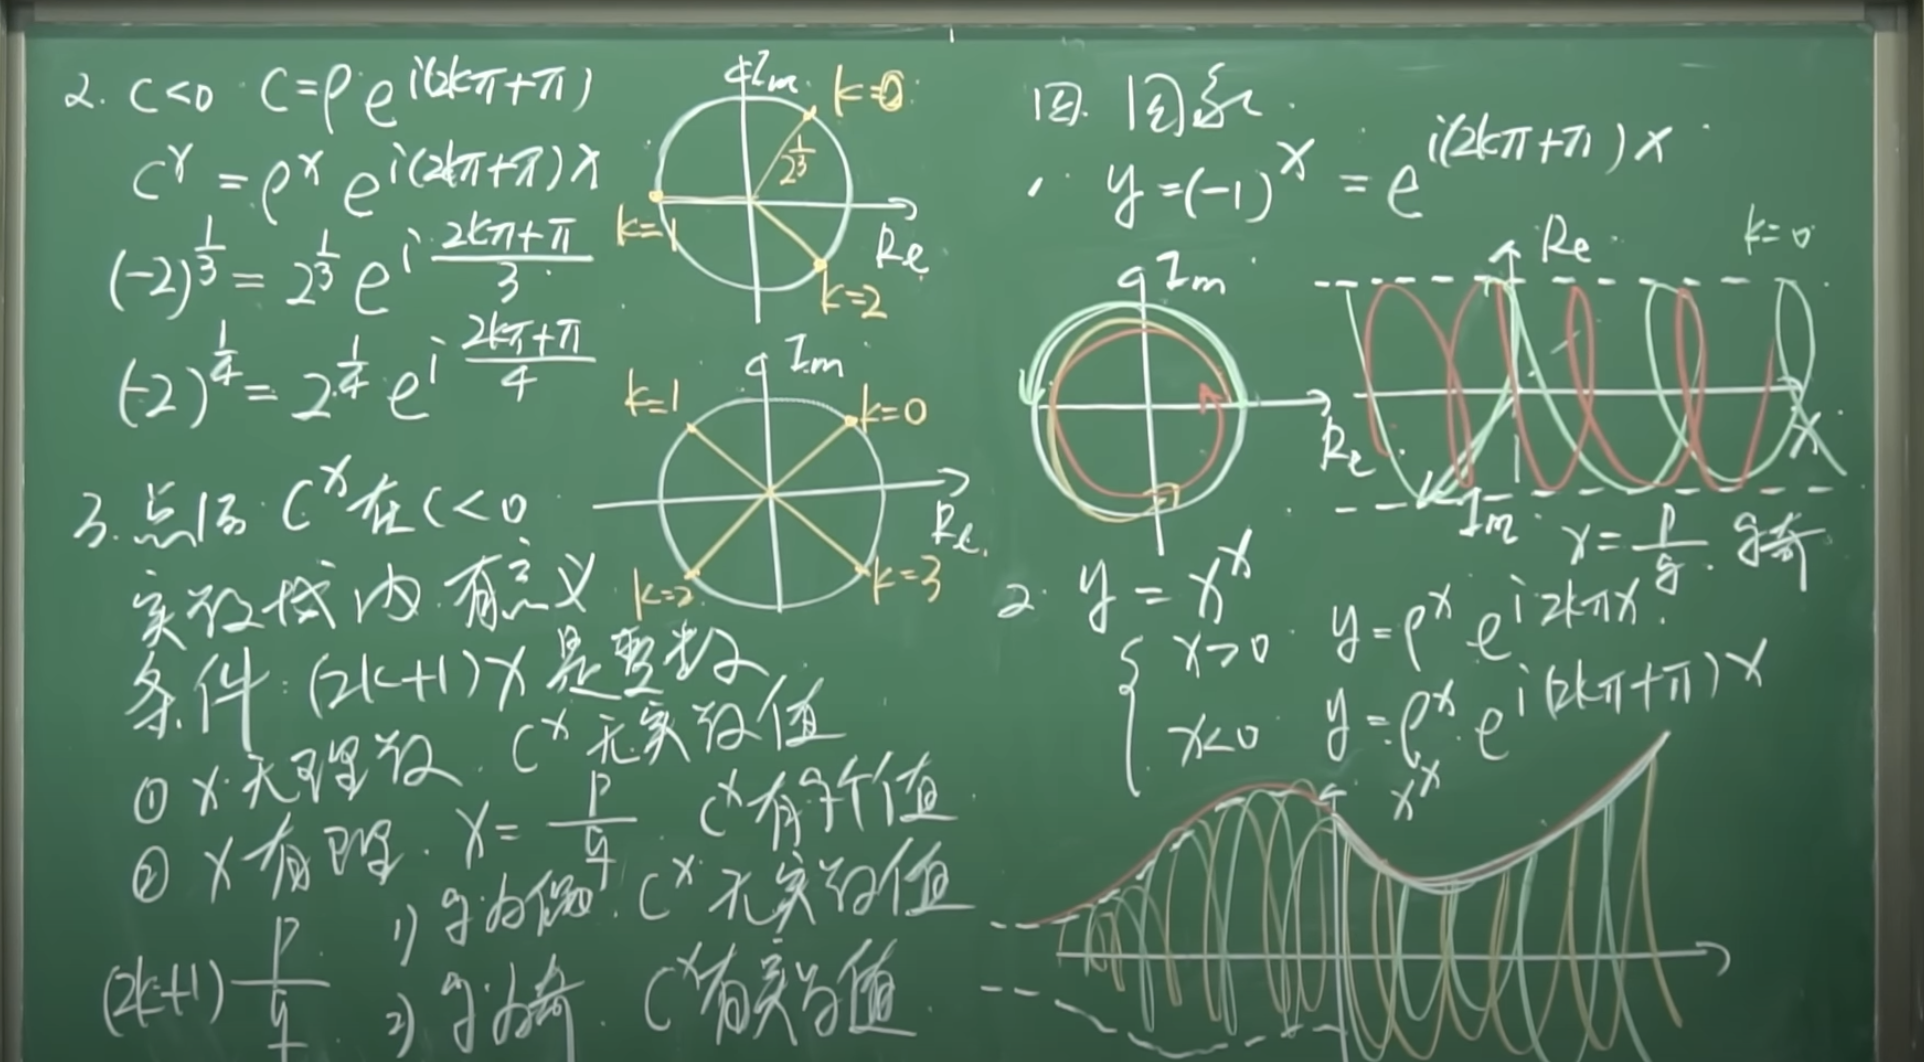 2. C<0 C=ρe^{i(2kπ+π)}
C^x = ρ^x e^{i(2kπ+π)x}
(-2)^{1/3} = 2^{1/3} e^{i (2kπ+π)/3}
(-2)^{1/4} = 2^{1/4} e^{i (2kπ+π)/4}
Im
k=0
2^{1/3}
k=1
Re
k=2
Im
k=1
k=0
Re
k=2
k=3
3. 点评 C^x在C<0
实数域内有意义
条件:(2k+1)x是整数
① x无理数. C^x无实数值
② x有理. x=p/q. C^x有q个值
1) q为偶. C^x无实数值
(2k+1) p/q
2) q为奇. C^x有实数值
四. 图象.
1. y=(-1)^x = e^{i(2kπ+π)x}
Im
Re
Re
k=0
x
Im
x=p/q. q奇
2. y=x^x
x>0 y=ρ^x e^{i2kπx}
x<0 y=ρ^x e^{i(2kπ+π)x}
x^x